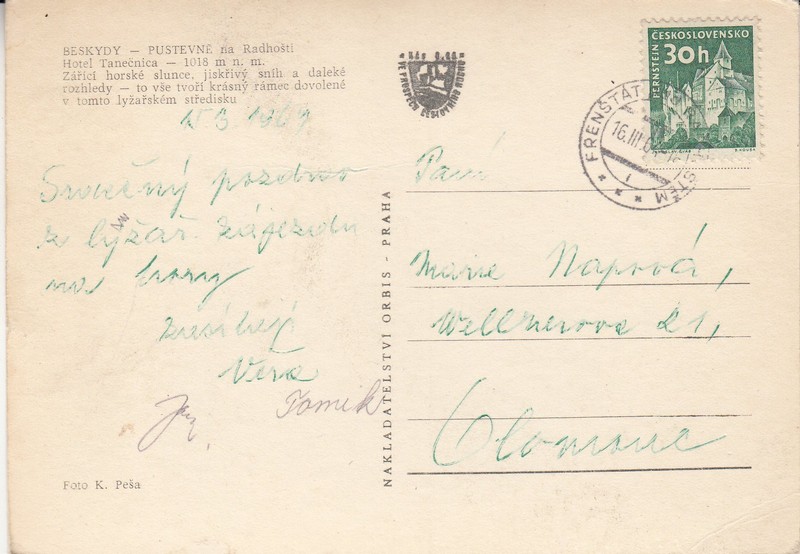 BESKYDY — PUSTEVNĚ na Radhošti
Hotel Tanečnica — 1018 m n. m.
Zářící horské slunce, jiskřivý sníh a daleké
rozhledy — to vše tvoří krásný rámec dovolené
v tomto lyžařském středisku
15 3 1961
Srdečný pozdrav
z lyžař. zájezdu
na hory
zasílají
Věra
Tomík
Jan
Foto K. Peša
NAKLADATELSTVÍ ORBIS - PRAHA
VE PROSPĚCH CESTOVNÍHO RUCHU
ČESKOSLOVENSKO
30h
PERNŠTEJN
FRENŠTÁT
ŠTĚM
16.III.6
Paní
Marie
Wellnerova 21,
Olomouc